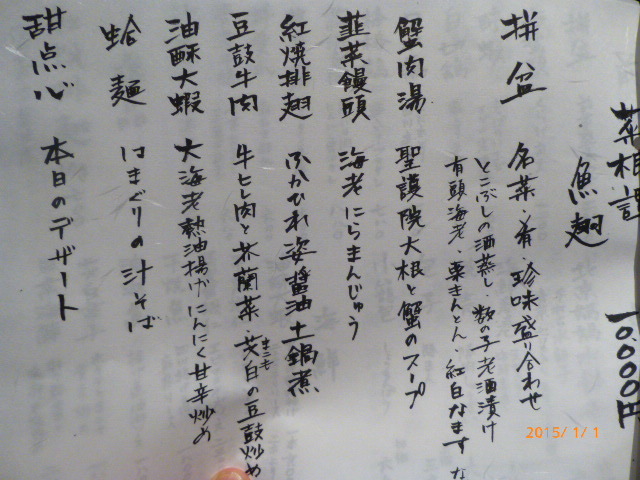 菜根譚
魚翅 10,000円
拼盆 名菜・肴・珍味盛り合わせ
とこぶしの酒蒸し・数の子老酒漬け
有頭海老・栗きんとん・紅白なます な
蟹肉湯 聖護院大根と蟹のスープ
韮菜饅頭 海老にらまんじゅう
紅燒排翅 ふかひれ姿醤油土鍋煮
豆鼓牛肉 牛ヒレ肉と芥蘭菜・茭白の豆鼓炒め
まこも
油酥大蝦 大海老熱油揚げにんにく甘辛炒め
蛤麺 はまぐりの汁そば
甜点心 本日のデザート
2015/1/1